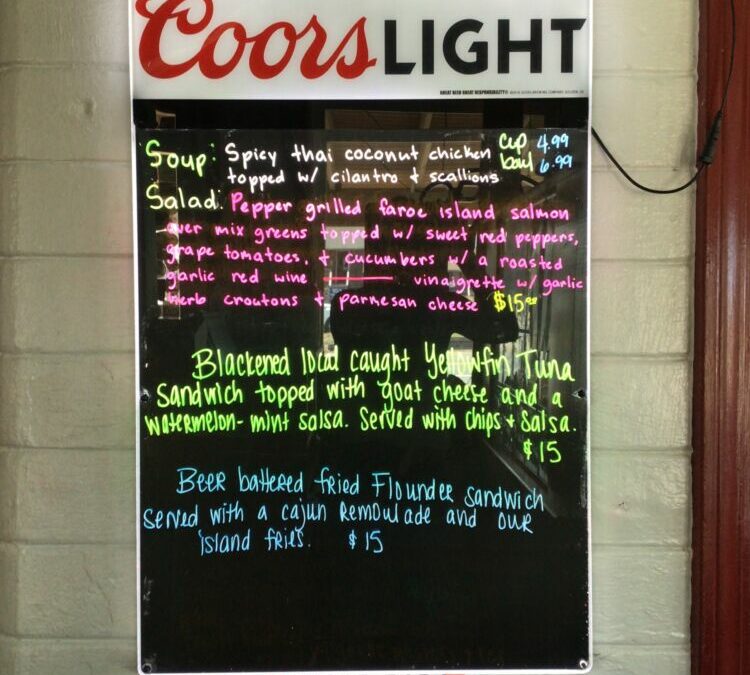 Coors LIGHT
GREAT BEER GREAT RESPONSIBILITY®
Soup: Spicy thai coconut chicken cup 4.99
topped w/ cilantro + scallions bowl 6.99
Salad: Pepper grilled faroe island salmon
over mix greens topped w/ sweet red peppers,
grape tomatoes, + cucumbers w/ a roasted
garlic red wine vinaigrette w/ garlic
herb croutons + parmesan cheese $15⁰⁰
Blackened local caught Yellowfin Tuna
Sandwich topped with goat cheese and a
watermelon-mint salsa. Served with chips + Salsa.
$15
Beer battered fried Flounder sandwich
served with a cajun Remoulade and our
island fries. $15